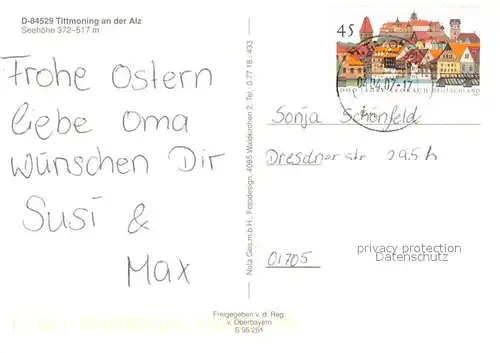 D-84529 Tittmoning an der Alz
Seehöhe 372-517 m
Frohe Ostern
liebe Oma
wünschen Dir
Susi &
Max
Nota Ges.m.b.H., Fotodesign, 4085 Waldkirchen 2, Tel. 0 77 18 / 433
45
04.04.07-17
DEUTSCHLAND
Sonja Schönfeld
Dresdner str 295h
01705
privacy protection
Datenschutz
Freigegeben v. d. Reg
v. Oberbayern
S 95/251